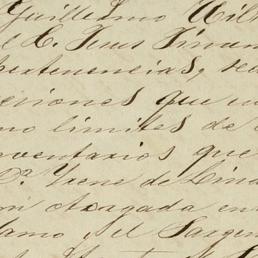 Guillermo Wil
el C. Jesus Tinun
pertenencias, se
ciones que un
mo limites de
nventarios que
D.ª Yrene de Lina
on otorgada en
lamo del Sargen